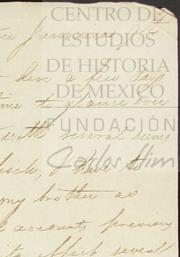 CENTRO DE
ESTUDIOS
DE HISTORIA
DE MEXICO
FUNDACIÓN
Carlos Slim
have a few days
time to glance over
with several sums
which, I have to
my brother as
accounts previous
to effect several